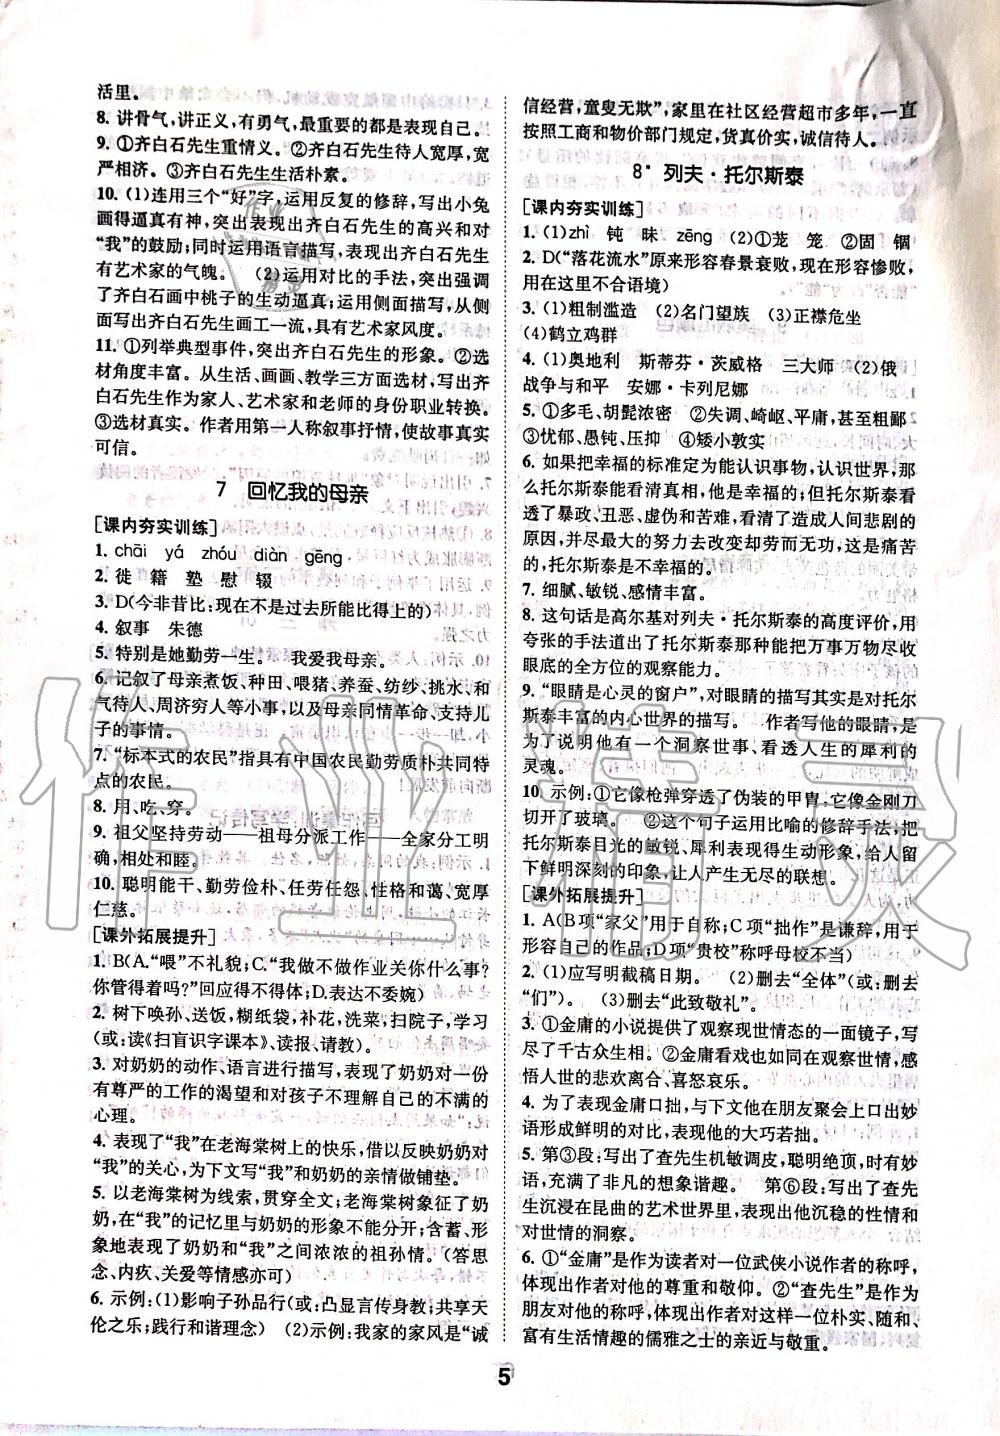 活里。
8. 讲骨气,讲正义,有勇气,最重要的都是表现自己。
9. ①齐白石先生重情义。②齐白石先生待人宽厚,宽
严相济。③齐白石先生生活朴素。
10. (1)连用三个“好”字,运用反复的修辞,写出小兔
画得逼真有神,突出表现出齐白石先生的高兴和对
“我”的鼓励;同时运用语言描写,表现出齐白石先生
有艺术家的气魄。 (2)运用对比的手法,突出强调
了齐白石画中桃子的生动逼真;运用侧面描写,从侧
面写出齐白石先生画工一流,具有艺术家风度。
11. ①列举典型事件,突出齐白石先生的形象。②选
材角度丰富。从生活、画画、教学三方面选材,写出齐
白石先生作为家人、艺术家和老师的身份职业转换。
③选材真实。作者用第一人称叙事抒情,使故事真实
可信。
7 回忆我的母亲
[课内夯实训练]
1. chāi yá zhóu diàn gēng
2. 徙 籍 塾 慰 辍
3. D(今非昔比:现在不是过去所能比得上的)
4. 叙事 朱德
5. 特别是她勤劳一生。 我爱我母亲。
6. 记叙了母亲煮饭、种田、喂猪、养蚕、纺纱、挑水、和
气待人、周济穷人等小事,以及母亲同情革命、支持儿
子的事情。
7. “标本式的农民”指具有中国农民勤劳质朴共同特
点的农民。
8. 用、吃、穿。
9. 祖父坚持劳动——祖母分派工作——全家分工明
确,相处和睦。
10. 聪明能干、勤劳俭朴、任劳任怨、性格和蔼、宽厚
仁慈。
[课外拓展提升]
1. B(A.“喂”不礼貌;C.“我做不做作业关你什么事?
你管得着吗?”回应得不得体;D.表达不委婉)
2. 树下唤孙、送饭,糊纸袋,补花,洗菜;扫院子,学习
(或:读《扫盲识字课本》、读报、请教)。
3. 对奶奶的动作、语言进行描写,表现了奶奶对一份
有尊严的工作的渴望和对孩子不理解自己的不满的
心理。
4. 表现了“我”在老海棠树上的快乐,借以反映奶奶对
“我”的关心,为下文写“我”和奶奶的亲情做铺垫。
5. 以老海棠树为线索,贯穿全文;老海棠树象征了奶
奶,在“我”的记忆里与奶奶的形象不能分开;含蓄、形
象地表现了奶奶和“我”之间浓浓的祖孙情。(答思
念、内疚、关爱等情感亦可)
6. 示例:(1)影响子孙品行(或:凸显言传身教;共享天
伦之乐;践行和谐理念) (2)示例:我家的家风是“诚
信经营,童叟无欺”,家里在社区经营超市多年,一直
按照工商和物价部门规定,货真价实,诚信待人。
8* 列夫·托尔斯泰
[课内夯实训练]
1. (1)zhì 钝 昧 zēng (2)①茏 笼 ②固 锢
2. D(“落花流水”原来形容春景衰败,现在形容惨败,
用在这里不合语境)
3. (1)粗制滥造 (2)名门望族 (3)正襟危坐
(4)鹤立鸡群
4. (1)奥地利 斯蒂芬·茨威格 三大师 (2)俄
战争与和平 安娜·卡列尼娜
5. ①多毛、胡髭浓密 ②失调、崎岖、平庸,甚至粗鄙
③忧郁、愚钝、压抑 ④矮小敦实
6. 如果把幸福的标准定为能认识事物,认识世界,那
么托尔斯泰能看清真相,他是幸福的;但托尔斯泰看
透了暴政、丑恶、虚伪和苦难,看清了造成人间悲剧的
原因,并尽最大的努力去改变却劳而无功,这是痛苦
的,托尔斯泰是不幸福的。
7. 细腻、敏锐、感情丰富。
8. 这句话是高尔基对列夫·托尔斯泰的高度评价,用
夸张的手法道出了托尔斯泰那种能把万事万物尽收
眼底的全方位的观察能力。
9. “眼睛是心灵的窗户”,对眼睛的描写其实是对托尔
斯泰丰富的内心世界的描写。 作者写他的眼睛,是
为了说明他有一个洞察世事、看透人生的犀利的
灵魂。
10. 示例:①它像枪弹穿透了伪装的甲胄,它像金刚刀
切开了玻璃。 ②这个句子运用比喻的修辞手法,把
托尔斯泰目光的敏锐、犀利表现得生动形象,给人留
下鲜明深刻的印象,让人产生无尽的联想。
[课外拓展提升]
1. A(B项“家父”用于自称;C项“拙作”是谦辞,用于
形容自己的作品;D项“贵校”称呼母校不当)
2. (1)应写明截稿日期。 (2)删去“全体”(或:删去
“们”)。 (3)删去“此致敬礼”。
3. ①金庸的小说提供了观察现世情态的一面镜子,写
尽了千古众生相。 ②金庸观看也如同在观察世情,感
悟人世的悲欢离合、喜怒哀乐。
4. 为了表现金庸口拙,与下文他在朋友聚会上口出妙
语形成鲜明的对比,表现他的大巧若拙。
5. 第③段:写出了查先生机敏调皮,聪明绝顶,时有妙
语,充满了非凡的想象谐趣。 第⑥段:写出了查先
生沉浸在昆曲的艺术世界里,表现出他沉稳的性情和
对世情的洞察。
6. ①“金庸”是作为读者对一位武侠小说作者的称呼,
体现出作者对他的尊重和敬仰。②“查先生”是作为
朋友对他的称呼,体现出作者对这样一位朴实、随和、
富有生活情趣的儒雅之士的亲近与敬重。
5
作业精灵